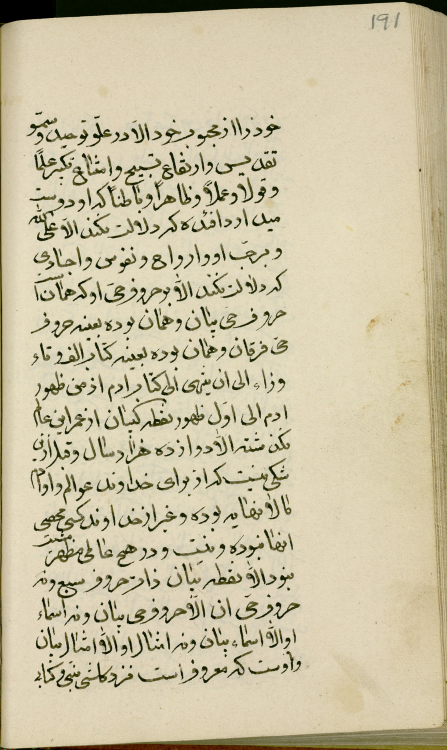 191
خود را از محبوب خود الا در علو توحید و سمو
تقدیس و ارتفاع تسبیح و امتناع تکبیر علما
و قولا و عملا و ظاهرا و باطنا که او دوست
میدارد افئده که دلالت نکند الا علی الله
و بر حب او و ارواح و نفوس و اجسادی
که دلالت نکند الا بر حروف حی او که همان است
حروف حی بیان و همان بوده بعینه حروف
حی فرقان و همان بوده بعینه کتاب الف و تاء
و زاء الی ان ینتهی الی کتاب ادم از من ظهور
ادم الی اول ظهور نقطه بیان از عمر این عالم
نگذشته الا دوازده هزار سال و قبل از این
شکی نیست که از برای خداوند عوالم و اوادم
ما لا نهایه بوده و غیر از خداوند کسی محصی
انها نبوده و نیست و در هیچ عالمی مظهر مشیت
نبوده الا نقطه بیان ذات حروف سبع و نه
حروف حی ان الا حروف حی بیان و نه اسماء
او الا اسماء بیان و نه امثال او الا امثال بیان
و اوست که معروف است نزد کلشی بنبی و کتابی